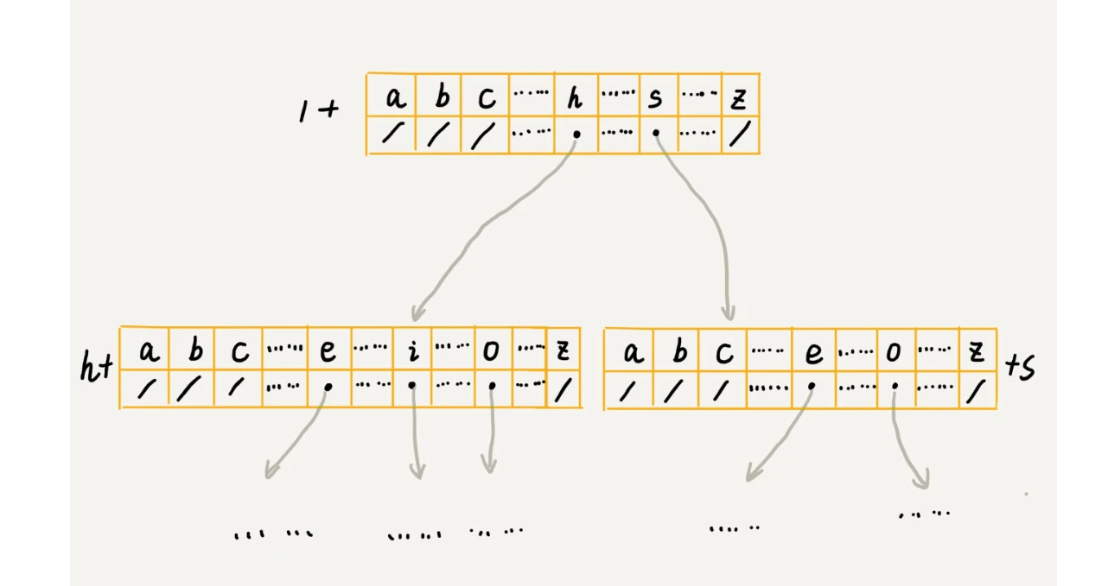 / +
a b c ...... h ...... s ...... z
/ / / ...... • ...... • ...... /
h+
a b c ...... e ...... i ...... o ...... z
/ / / ...... • ...... • ...... • ...... /
a b c ...... e ...... o ...... z
/ / / ...... • ...... • ...... /
+s
...... ...... ......
...... ......